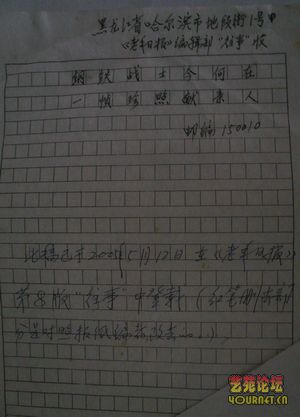 黑龙江省哈尔滨市地段街1号
《老年日报》编辑部"往事"收
钢铁战士今何在
一帧珍照献亲人
邮编150010
此稿已于2005年5月12日在《老年日报》
第8版"往事"中登载(红笔删去部
分是对照报纸编者改去的)。
艺苑论坛
YOURNET.CN